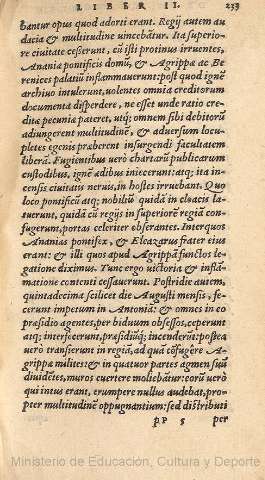 LIBER II. 233
bantur opus quod adorti erant. Regij autem au
dacia & multitudine uincebātur. Ita superio-
re ciuitate cesserunt, cū isti protinus irruentes,
Anania pontificis domū, & Agrippæ ac Be
renices palatiū inflammauerunt: post quod ignē
archiuo intulerunt, uolentes omnia creditorum
documenta disperdere, ne esset unde ratio cre-
ditæ pecuniæ pateret, utq; omnem sibi debitorū
adiungerent multitudinē, & aduersum locu-
pletes egenis præberent insurgendi facultatem
liberā. Fugientibus uero chartarū publicarum
custodibus, ignē ædibus iniecerunt: atq; ita in-
censis ciuitatis neruis, in hostes irruebant. Quo
loco pontificū atq; nobiliū quidā in cloacis la-
tuerunt, quidā cū regijs in superiorē regiā con-
fugerunt, portas celeriter obserantes. Inter quos
Ananias pontifex, & Eleazarus frater eius
erant: & illi quos apud Agrippā functos le-
gatione diximus. Tunc ergo uictoria & inflā-
matione contenti cessauerunt. Postridie autem,
quintadecima scilicet die Augusti mensis, fe-
cerunt impetum in Antoniā: & omnes in eo
præsidio agentes, per biduum obsessos, ceperunt
atq; interfecerunt, præsidiūq; incenderūt: postea
uero transierunt in regiā, ad quā cōfugere A-
grippæ milites: & in quatuor partes agmen suū
diuidētes, muros euertere moliebātur: eorū uerò
qui intus erant, erumpere nullus audebat, pro-
pter multitudinē oppugnantium: sed distributi
pP 5 per
Ministerio de Educación, Cultura y Deporte